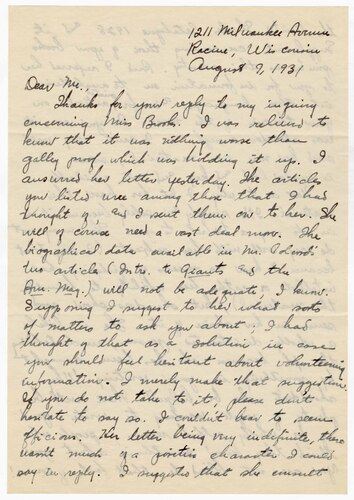 1211 Milwaukee Avenue
Racine, Wisconsin
August 9, 1931
Dear Mr.,
Thanks for your reply to my inquiry
concerning Miss Brooks. I was relieved to
know that it was nothing worse than
gally proof which was holding it up. I
answered her letter yesterday. The articles
you listed were among those that I had
thought of, and I sent them on to her. She
will of course need a vast deal more. The
biographical data available in Mr.
two article (Intro. to Giants and the
Am. Mag.) will not be adequate, I know.
Supposing I suggest to her what sorts
of matters to ask you about; I had
thought of that as a solution in case
you should feel hesitant about volunteering
information. I merely make that suggestion.
If you do not take to it, please don't
hesitate to say so. I couldn't bear to seem
officious. Her letter being very indefinite, there
wasn't much of a positive character I could
say in reply. I suggested that she consult